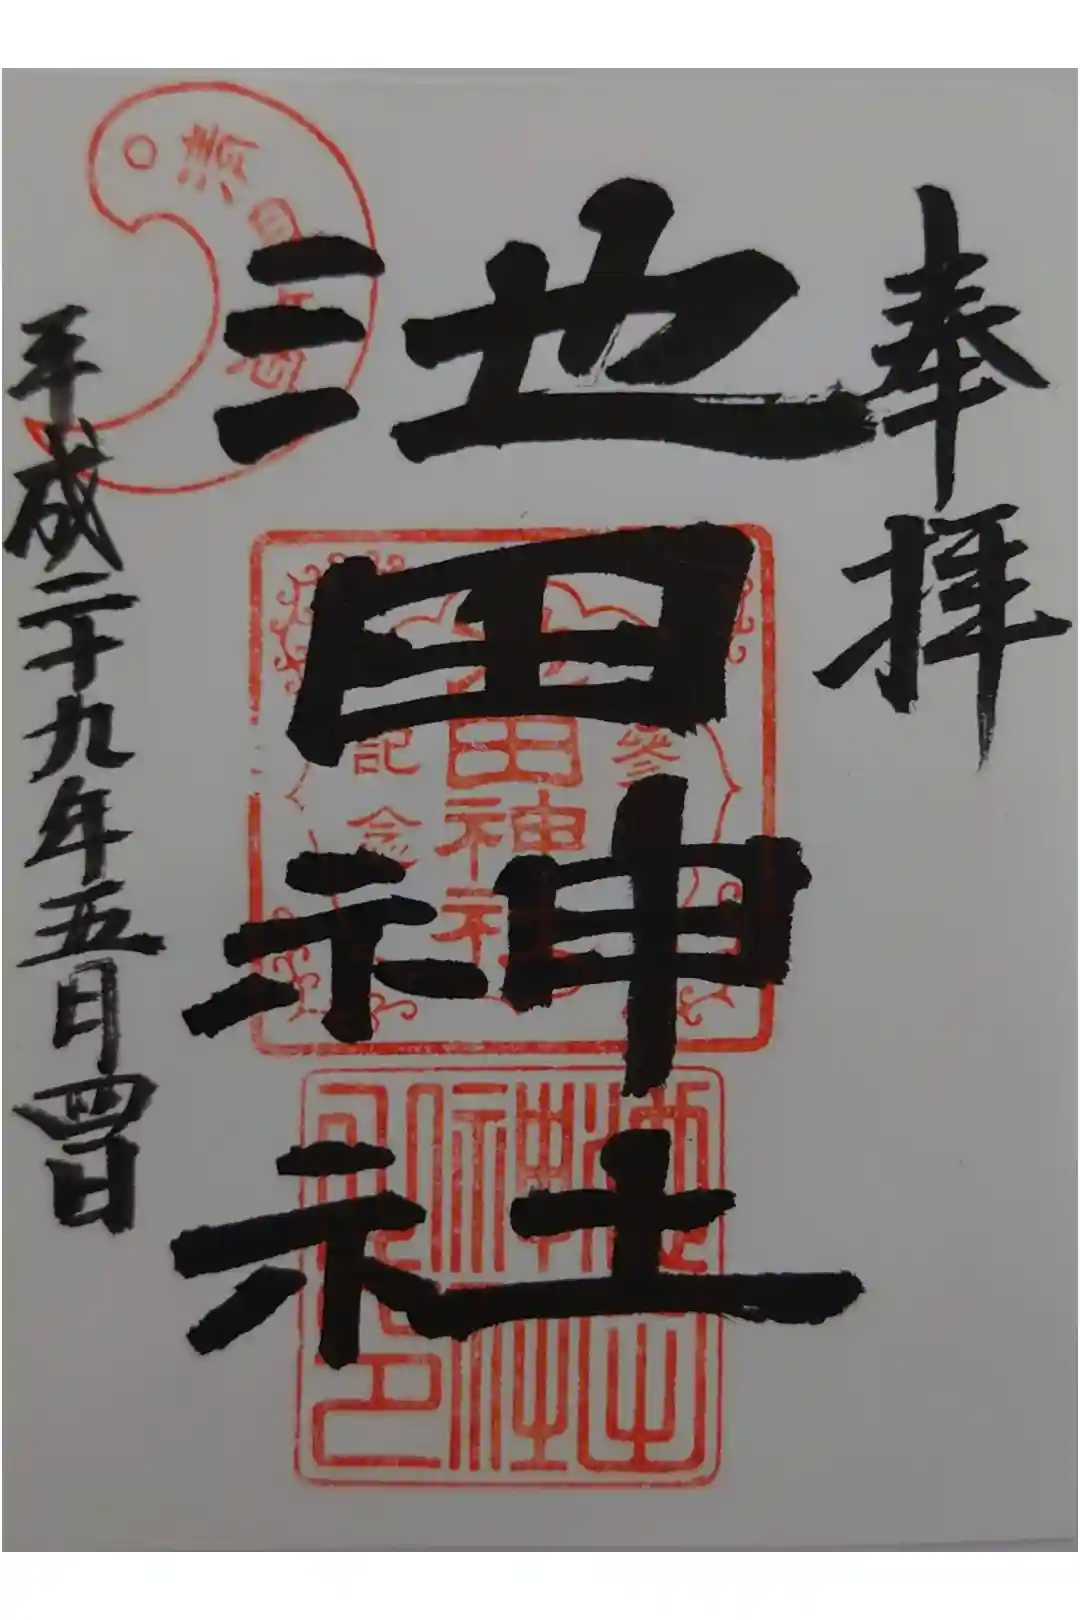 奉拝
池田神社
平成二十九年五月四日
参
記念
田神社